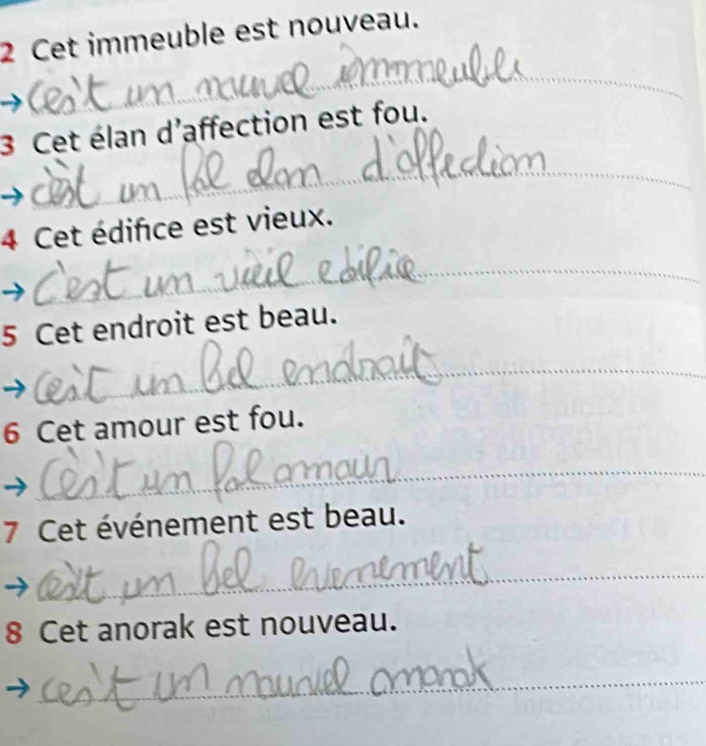 2 Cet immeuble est nouveau.
→ Ces't un nouvel immeuble
3 Cet élan d'affection est fou.
→ c'est un fol elan d'affection
4 Cet édifice est vieux.
→ C'est un vieil edifice
5 Cet endroit est beau.
→ Ces't un Bel endroit
6 Cet amour est fou.
→ Ces't un fol amour
7 Cet événement est beau.
→ ces't un Bel evenement
8 Cet anorak est nouveau.
→ ces't un nouvel anorak